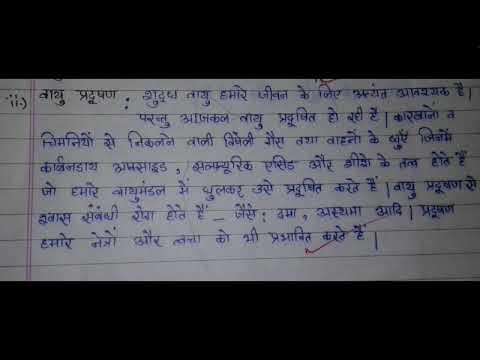 ii.) वायु प्रदूषण : शुद्ध वायु हमारे जीवन के लिए अत्यंत आवश्यक है।
परन्तु आजकल वायु प्रदूषित हो रही है। कारखानों व
चिमनियों से निकलने वाली विषैली गैस तथा वाहनों के धुएँ जिनमें
कार्बनडाय अक्साइड, सलफ्यूरिक एसिड और शीशे के तत्व होते हैं
जो हमारे वायुमंडल में घुलकर उसे प्रदूषित करते हैं। वायु प्रदूषण से
श्वास संबंधी रोग होते हैं – जैसे : दमा, अस्थमा आदि। प्रदूषण
हमारे नेत्रों और त्वचा को भी प्रभावित करते हैं।